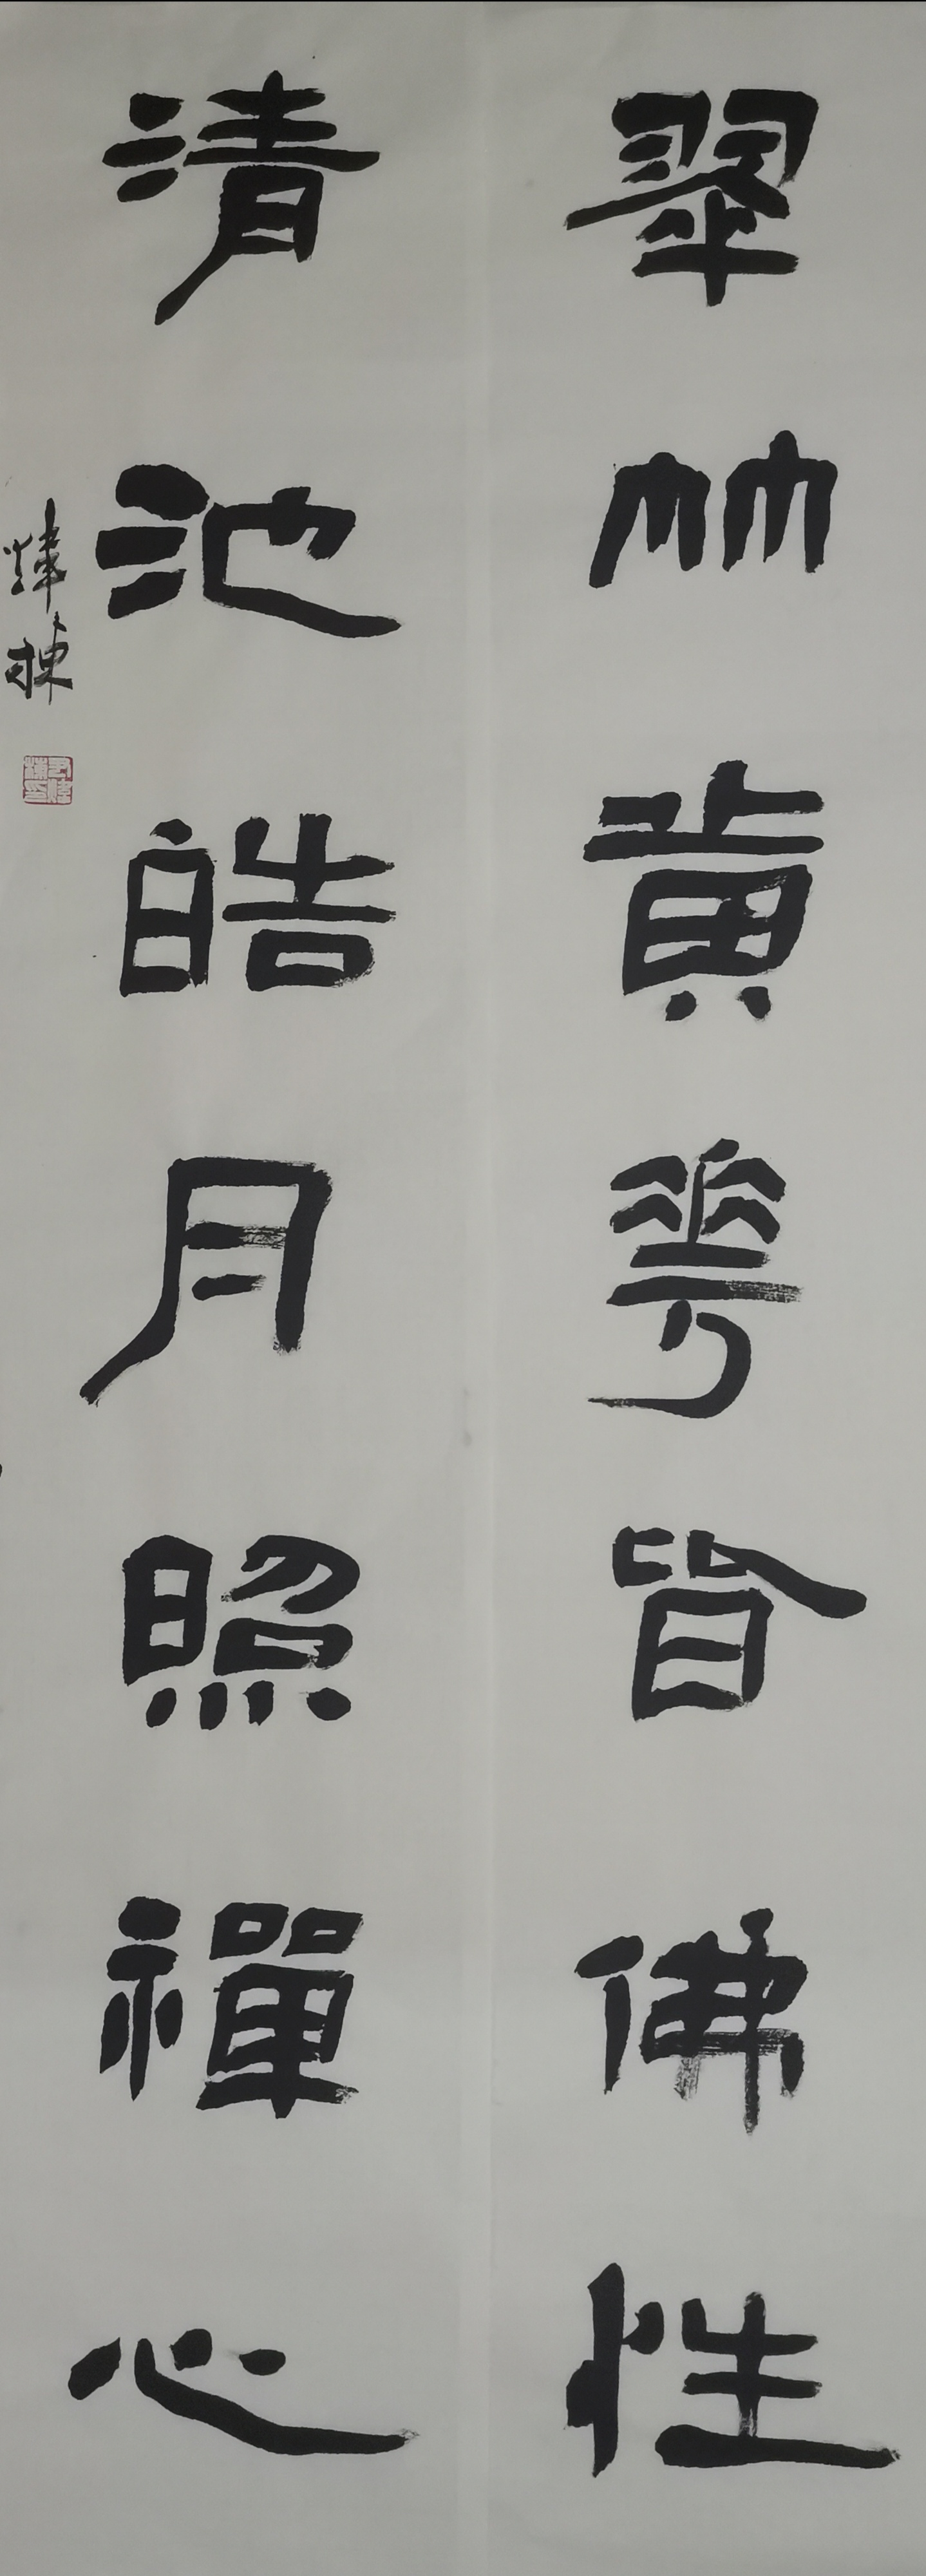 翠竹黄華皆佛性
清池皓月照禪心
煒棟